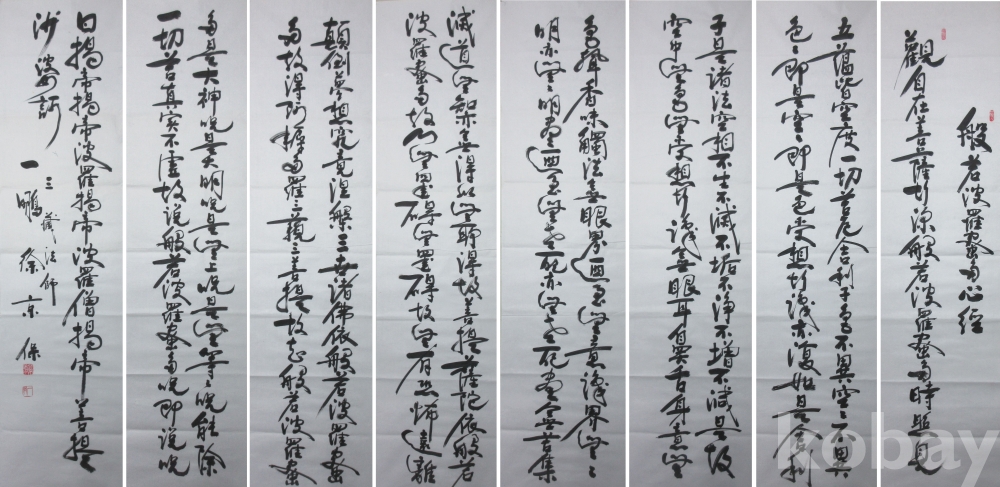 般若波羅蜜多心經
觀自在菩薩行深般若波羅蜜多時照見
五蘊皆空度一切苦厄舍利子色不異空〻不異
色〻即是空〻即是色受想行識亦復如是舍利
子是諸法空相不生不滅不垢不淨不增不減是故
空中無色無受想行識無眼耳鼻舌身意無
色聲香味觸法無眼界乃至無意識界無〻
明亦無〻明盡乃至無老死亦無老死盡無苦集
滅道無智無得以無所得故菩提薩陀依般若
波羅蜜多故心無罣礙無罣礙故無有恐怖遠離
顛倒夢想究竟涅槃三世諸佛依般若波羅蜜
多故得阿耨多羅三藐三菩提故知般若波羅蜜
多是大神呪是大明呪是無上呪是無等〻呪能除
一切苦真實不虛故說般若波羅蜜多呪即說呪
曰揭帝揭帝波羅揭帝波羅僧揭帝菩提
沙婆訶
三藏法師
一鵬 徐京保
kobay